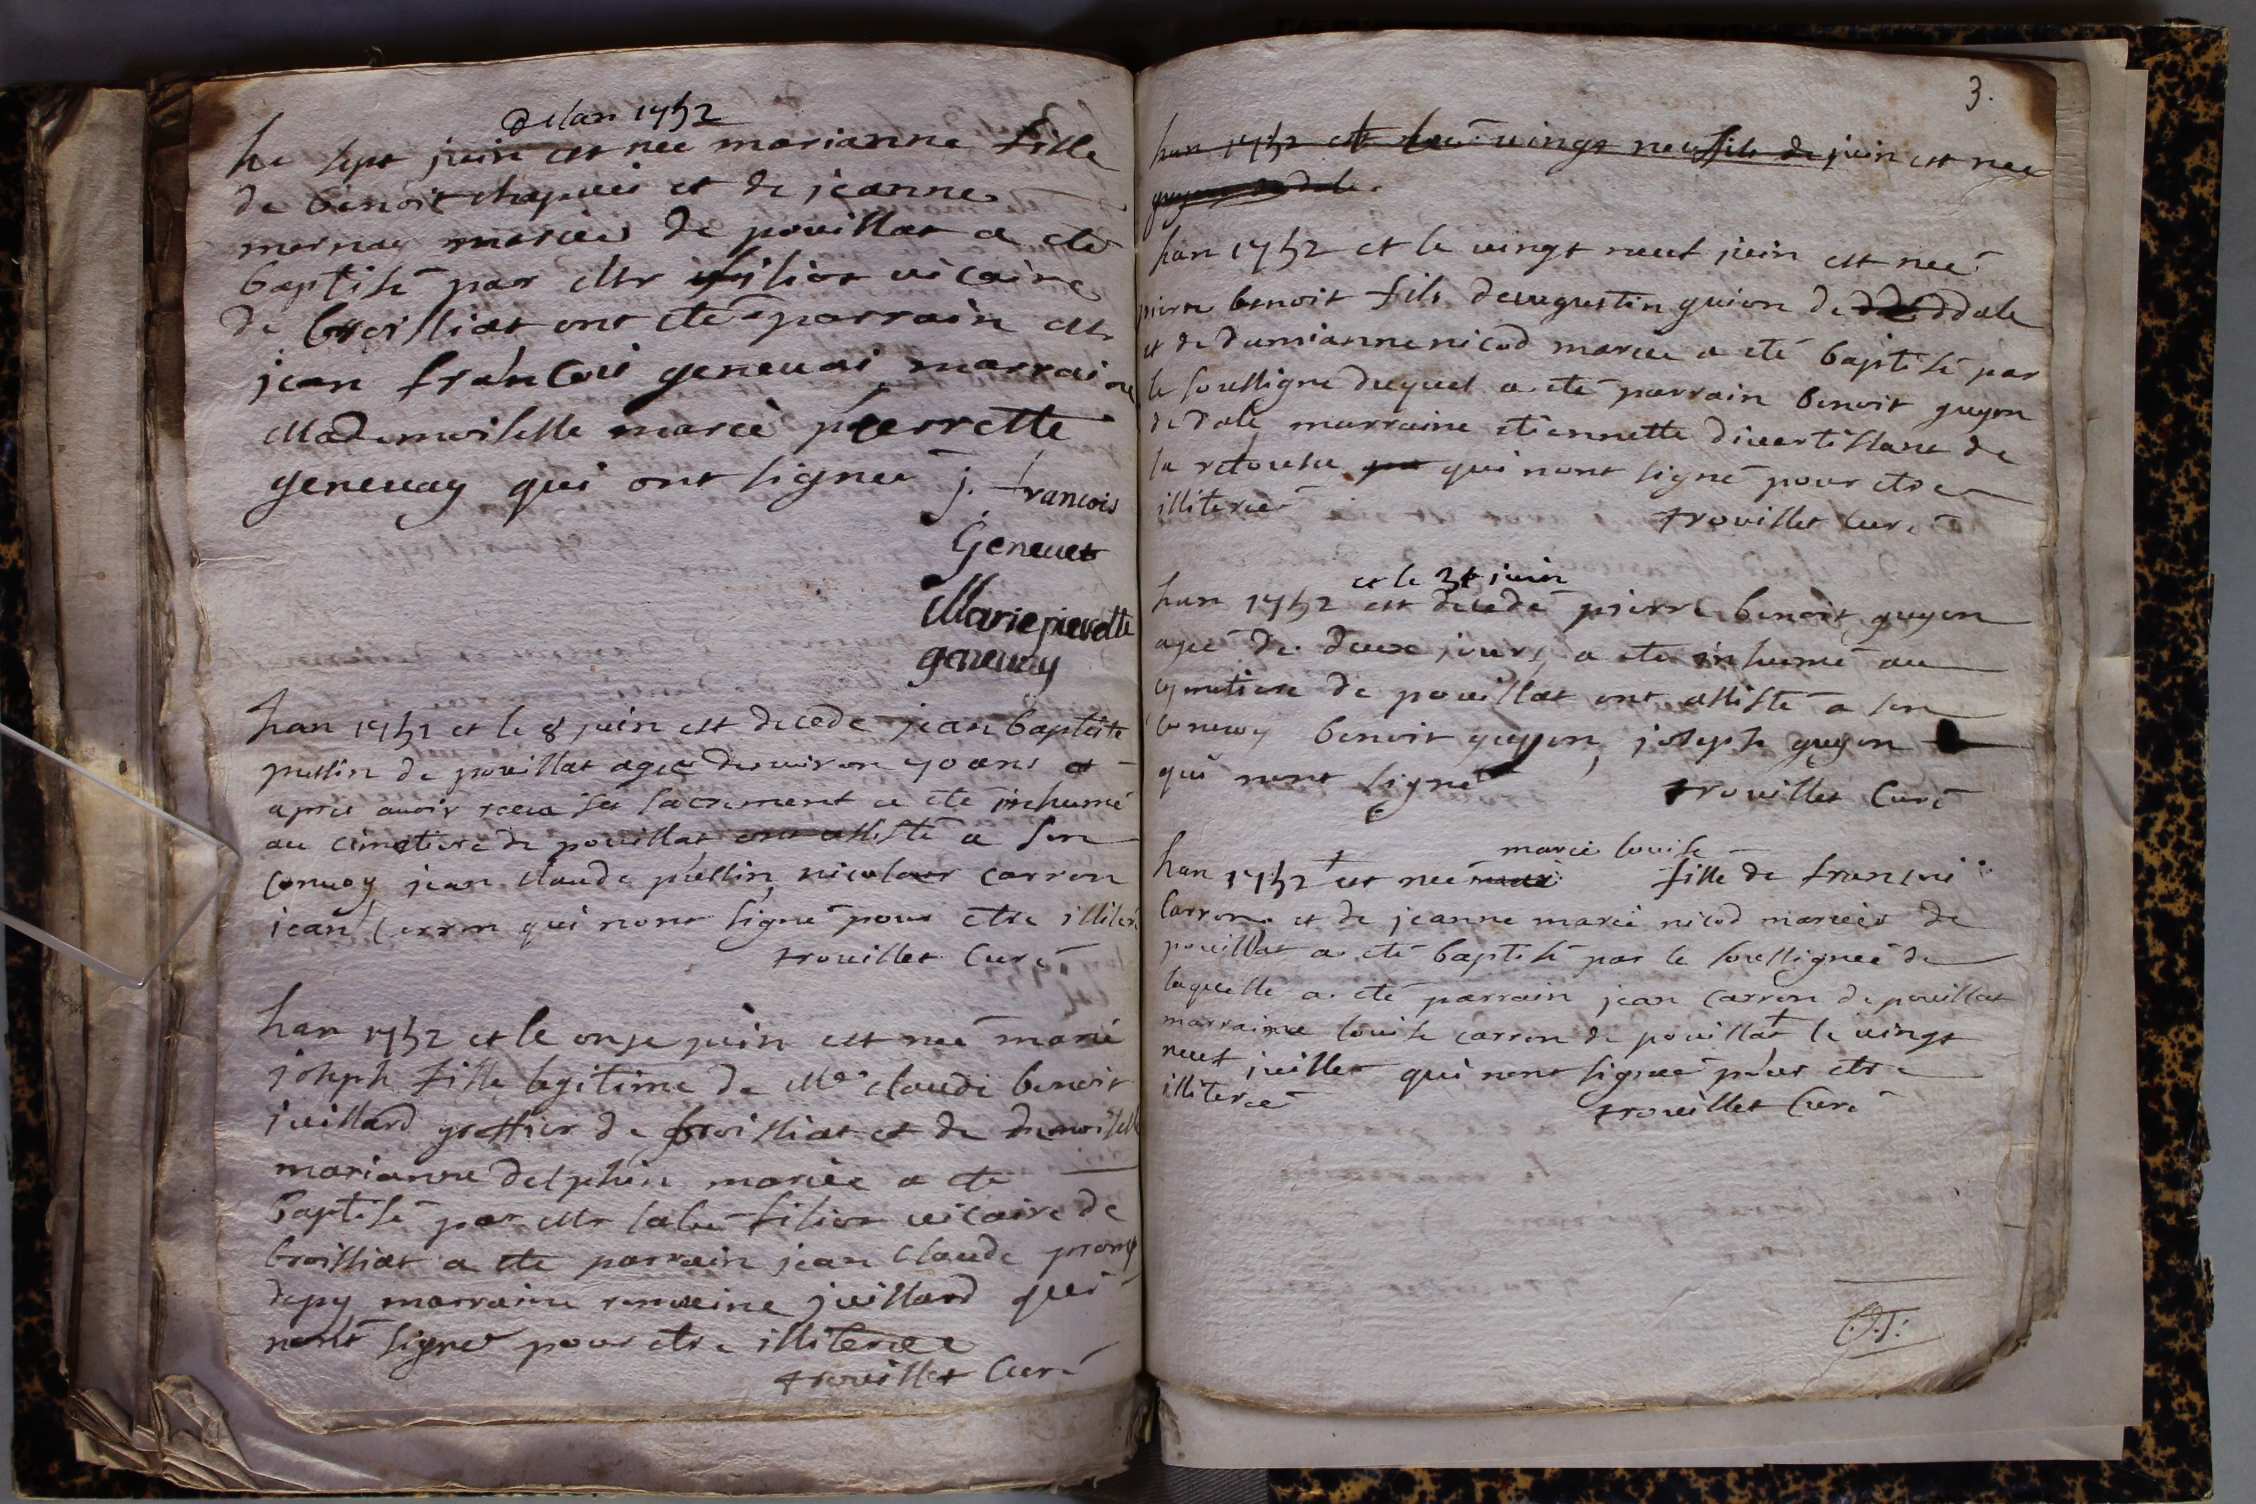 de lan 1752
le sept juin est nee marianne fille
de benoit chapuis et de jeanne
mornay mariés de pouillat a eté
baptisé par Mr filion vicaire
de broissiat ont eté parrain Mr
jean francois genevai marraine
Mademoiselle marie pierrette
genevay qui ont signee j. francois
Genevet
Marie pierette
genevay
lan 1752 et le 8 juin est decede jean baptiste
puslin de pouillat agee denviron 70 ans et
apres avoir recu ses sacrement a eté inhumé
au cimetiere de pouillat ont assisté a son
convoy jean claude puslin, nicolas carron
jean carron qui nont signé pour etre illiteré
trouillet Curé
lan 1752 et le onze juin est neé marie
joseph fille legitime de Me claude benoit
juillard greffier de broissiat et de demoiselle
marianne delphin mariée a ete
baptisé par Mr labé filion vicaire de
broissiat a ete parrain jean claude
depy marraine romaine juillard qui
nont signé pour etre illiteree
trouillet Curé
3.
lan 1752 et le vingt neuf de juin est nee
guyon de dale
lan 1752 et le vingt neuf juin est neé
pierre benoit fils deaugustin guion de ddale
et de damianne nicod mariee a eté baptisé par
le soussigne duquel a eté parrain benoit guyon
de dale marraine etiennette divertissant de
la retouse qui nont signé pour etre
illiteree
trouillet Curé
et le 31 juin
lan 1752 est decedé pierre benoit guyon
ageé de deux jours, a ete inhumé au
cymetiere de pouillat ont assisté a son
convoy benoit guyon, joseph guyon
qui nont signé
trouillet Curé
marie louise
lan 1752 + est neé fille de francois
Carron et de jeanne marie nicod mariés de
pouillat a eté baptisé par le soussigneé de
laquelle a eté parrain jean carron de pouillat
marraine louise carron de pouillat + le vingt
neuf juillet qui nont signeé pour etre
illitereé
trouillet Curé